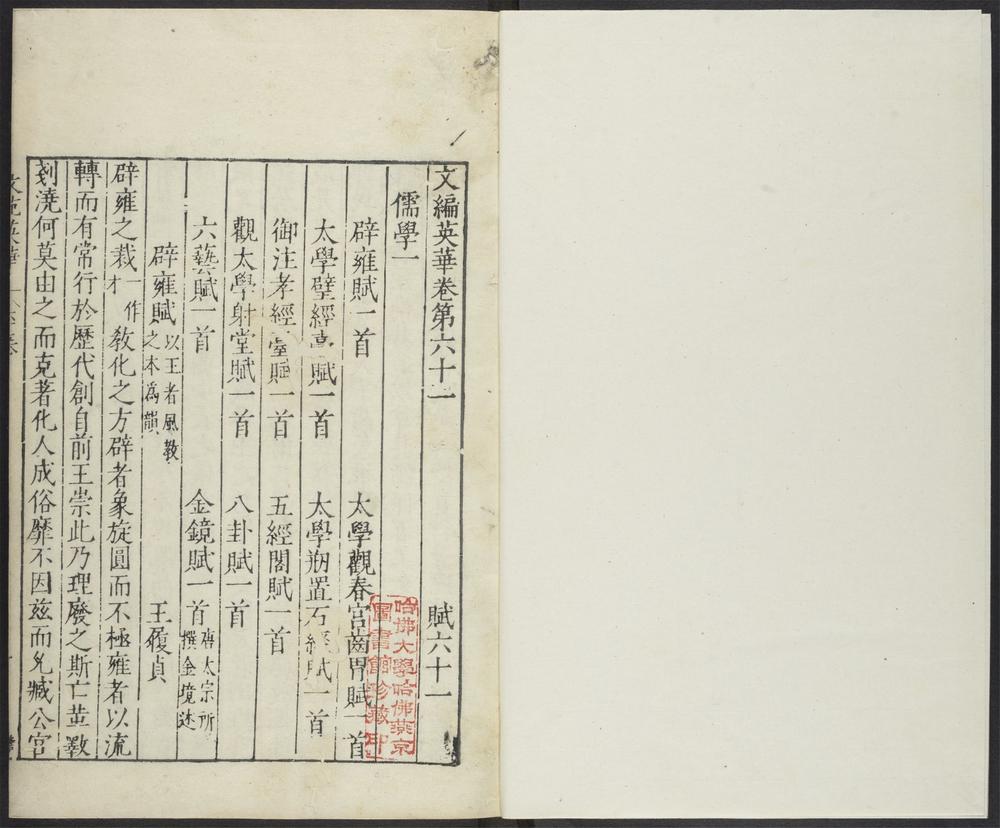 文編英華卷第六十一 賦六十一
儒學一
辟雍賦一首 太學觀春宮齒胄賦一首
太學壁經賦一首 太學刱置石經賦一首
御注孝經臺賦一首 五經閣賦一首
觀太學射堂賦一首 八卦賦一首
六藝賦一首 金鏡賦一首 唐太宗所撰金境述
辟雍賦 以王者風教之本為韻 王履貞
辟雍之裁一作才教化之方辟者象旋圓而不極雍者以流
轉而有常行於歷代創自前王崇此乃理廢之斯亡並斁
澆何莫由之而克著化人成俗靡不因茲而允臧公宮
文苑英華
哈佛大學哈佛燕京
圖書館珍藏印